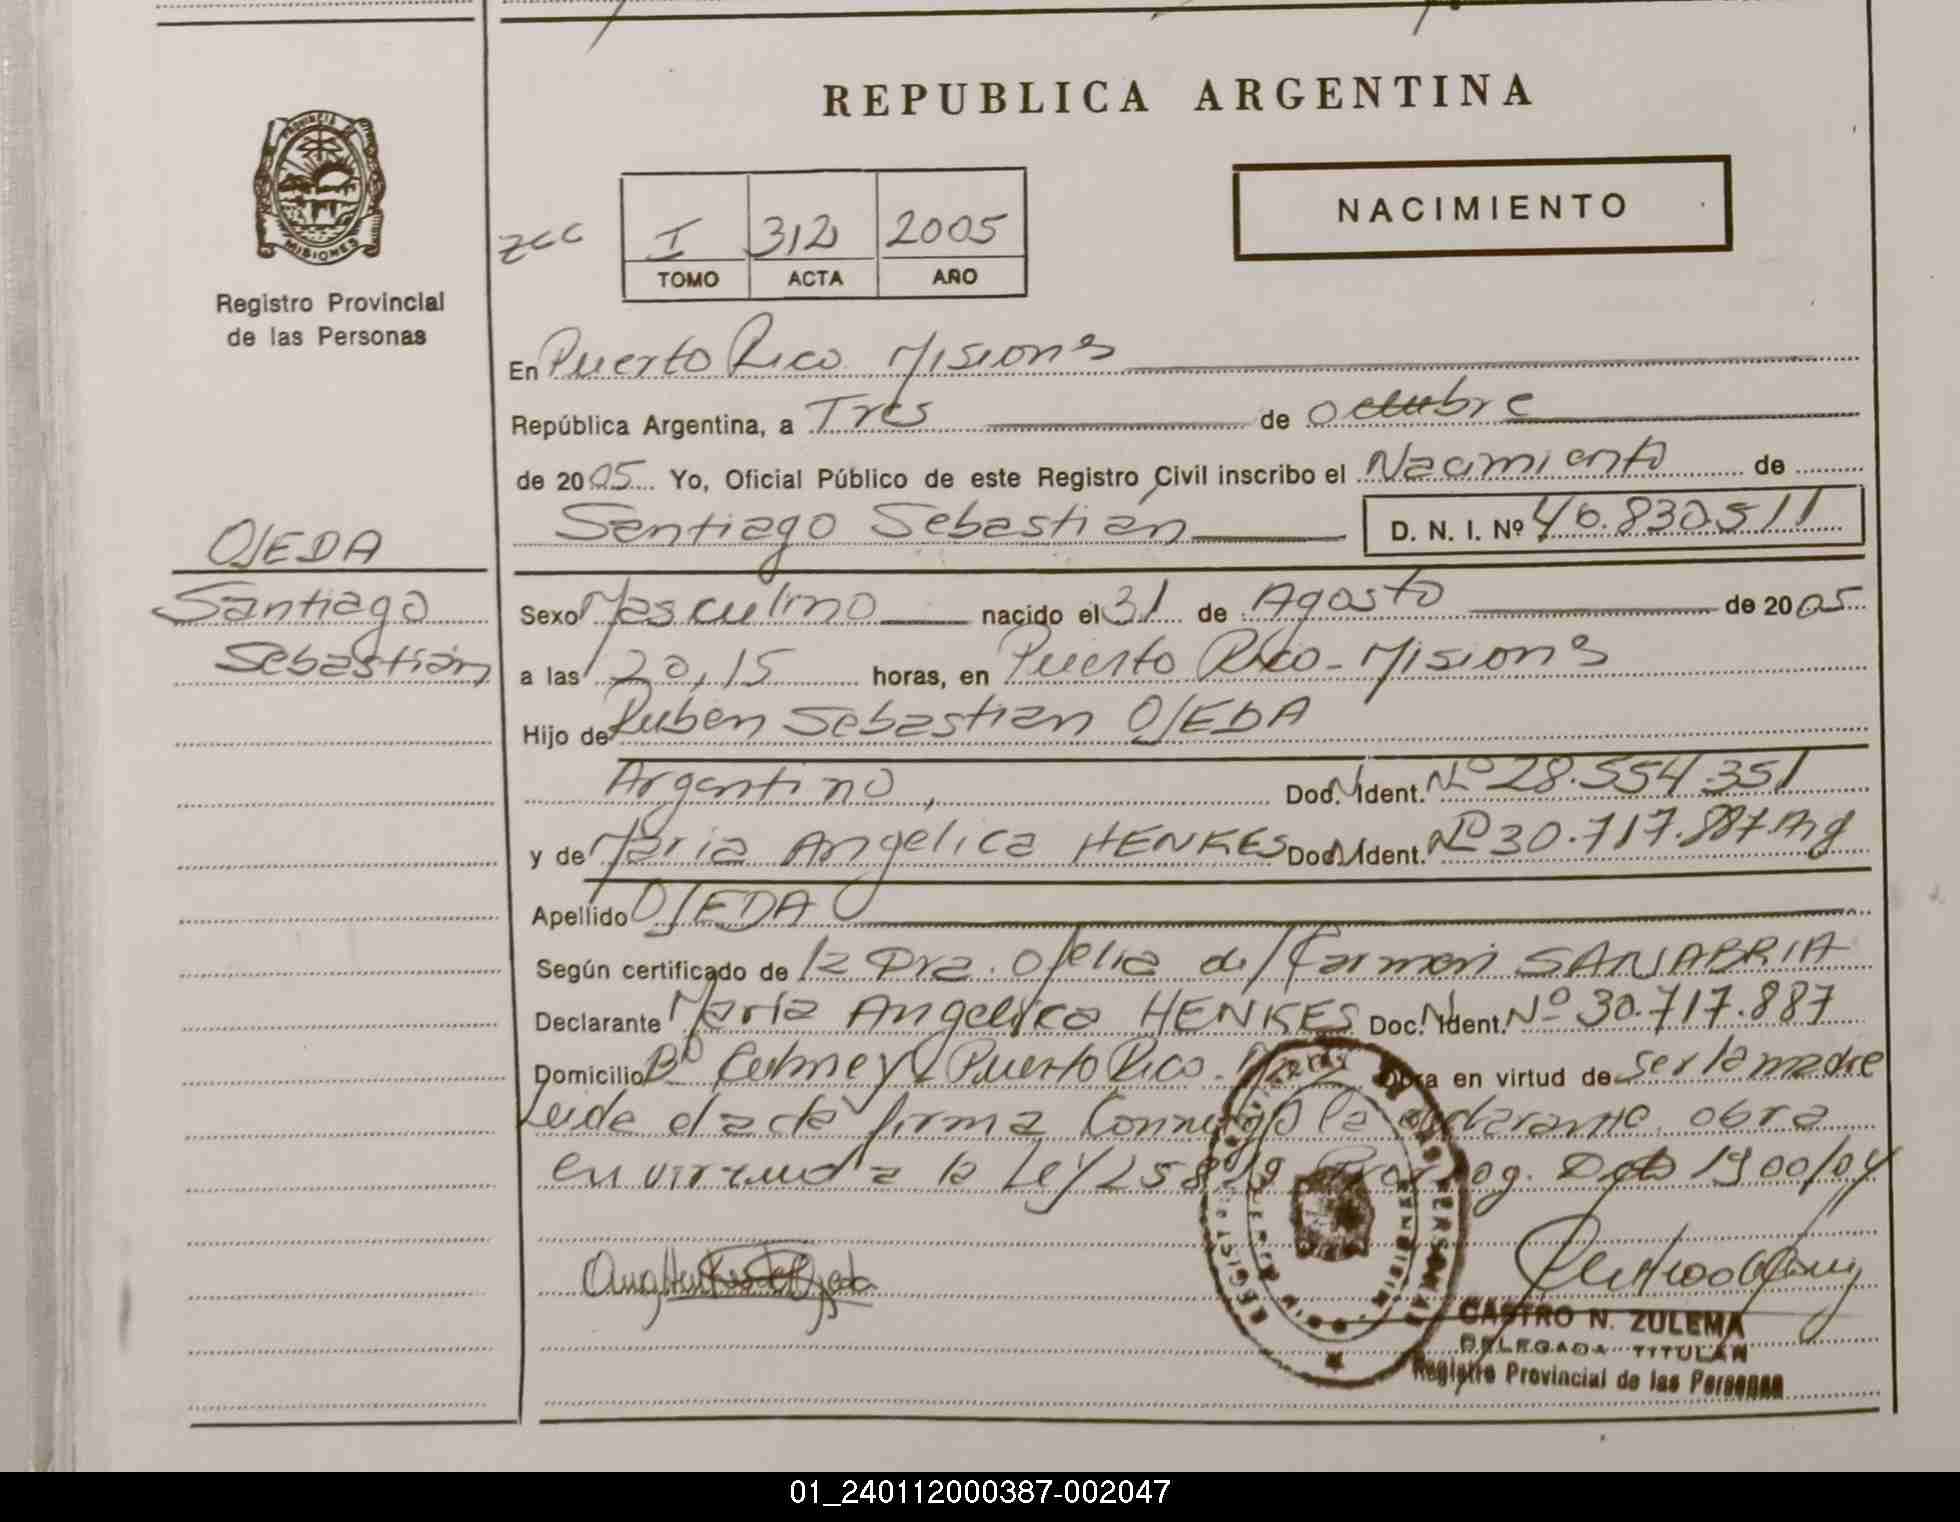 REPUBLICA ARGENTINA
PROVINCIA DE
MISIONES
Registro Provincial
de las Personas
NACIMIENTO
zcc
I 312 2005
TOMO ACTA AÑO
En Puerto Rico Misiones
República Argentina, a Tres de octubre
de 2005 Yo, Oficial Público de este Registro Civil inscribo el Nacimiento de
Santiago Sebastián D. N. I. Nº 46.830.511
OJEDA
Santiago
Sebastián
Sexo Masculino nacido el 31 de Agosto de 2005
a las 20,15 horas, en Puerto Rico - Misiones
Hijo de Ruben Sebastian OJEDA
Argentino, Doc. N. Ident. Nº 28.554.351
y de Maria Angelica HENKES Doc. N. Ident. Nº 30.717.887 Arg
Apellido OJEDA
Según certificado de la Dra. Ofelia del Carmen SANABRIA
Declarante María Angelica HENKES Doc. N. Ident. Nº 30.717.887
Domicilio Bº Puerto Rico. Obra en virtud de ser la madre
Leida el acta firma Conmigo la declarante obra
en virtud a la Ley 25819 Prorrog. Dcto 1900/04
CASTRO N. ZULEMA
DELEGADA TITULAR
Registro Provincial de las Personas
01_240112000387-002047